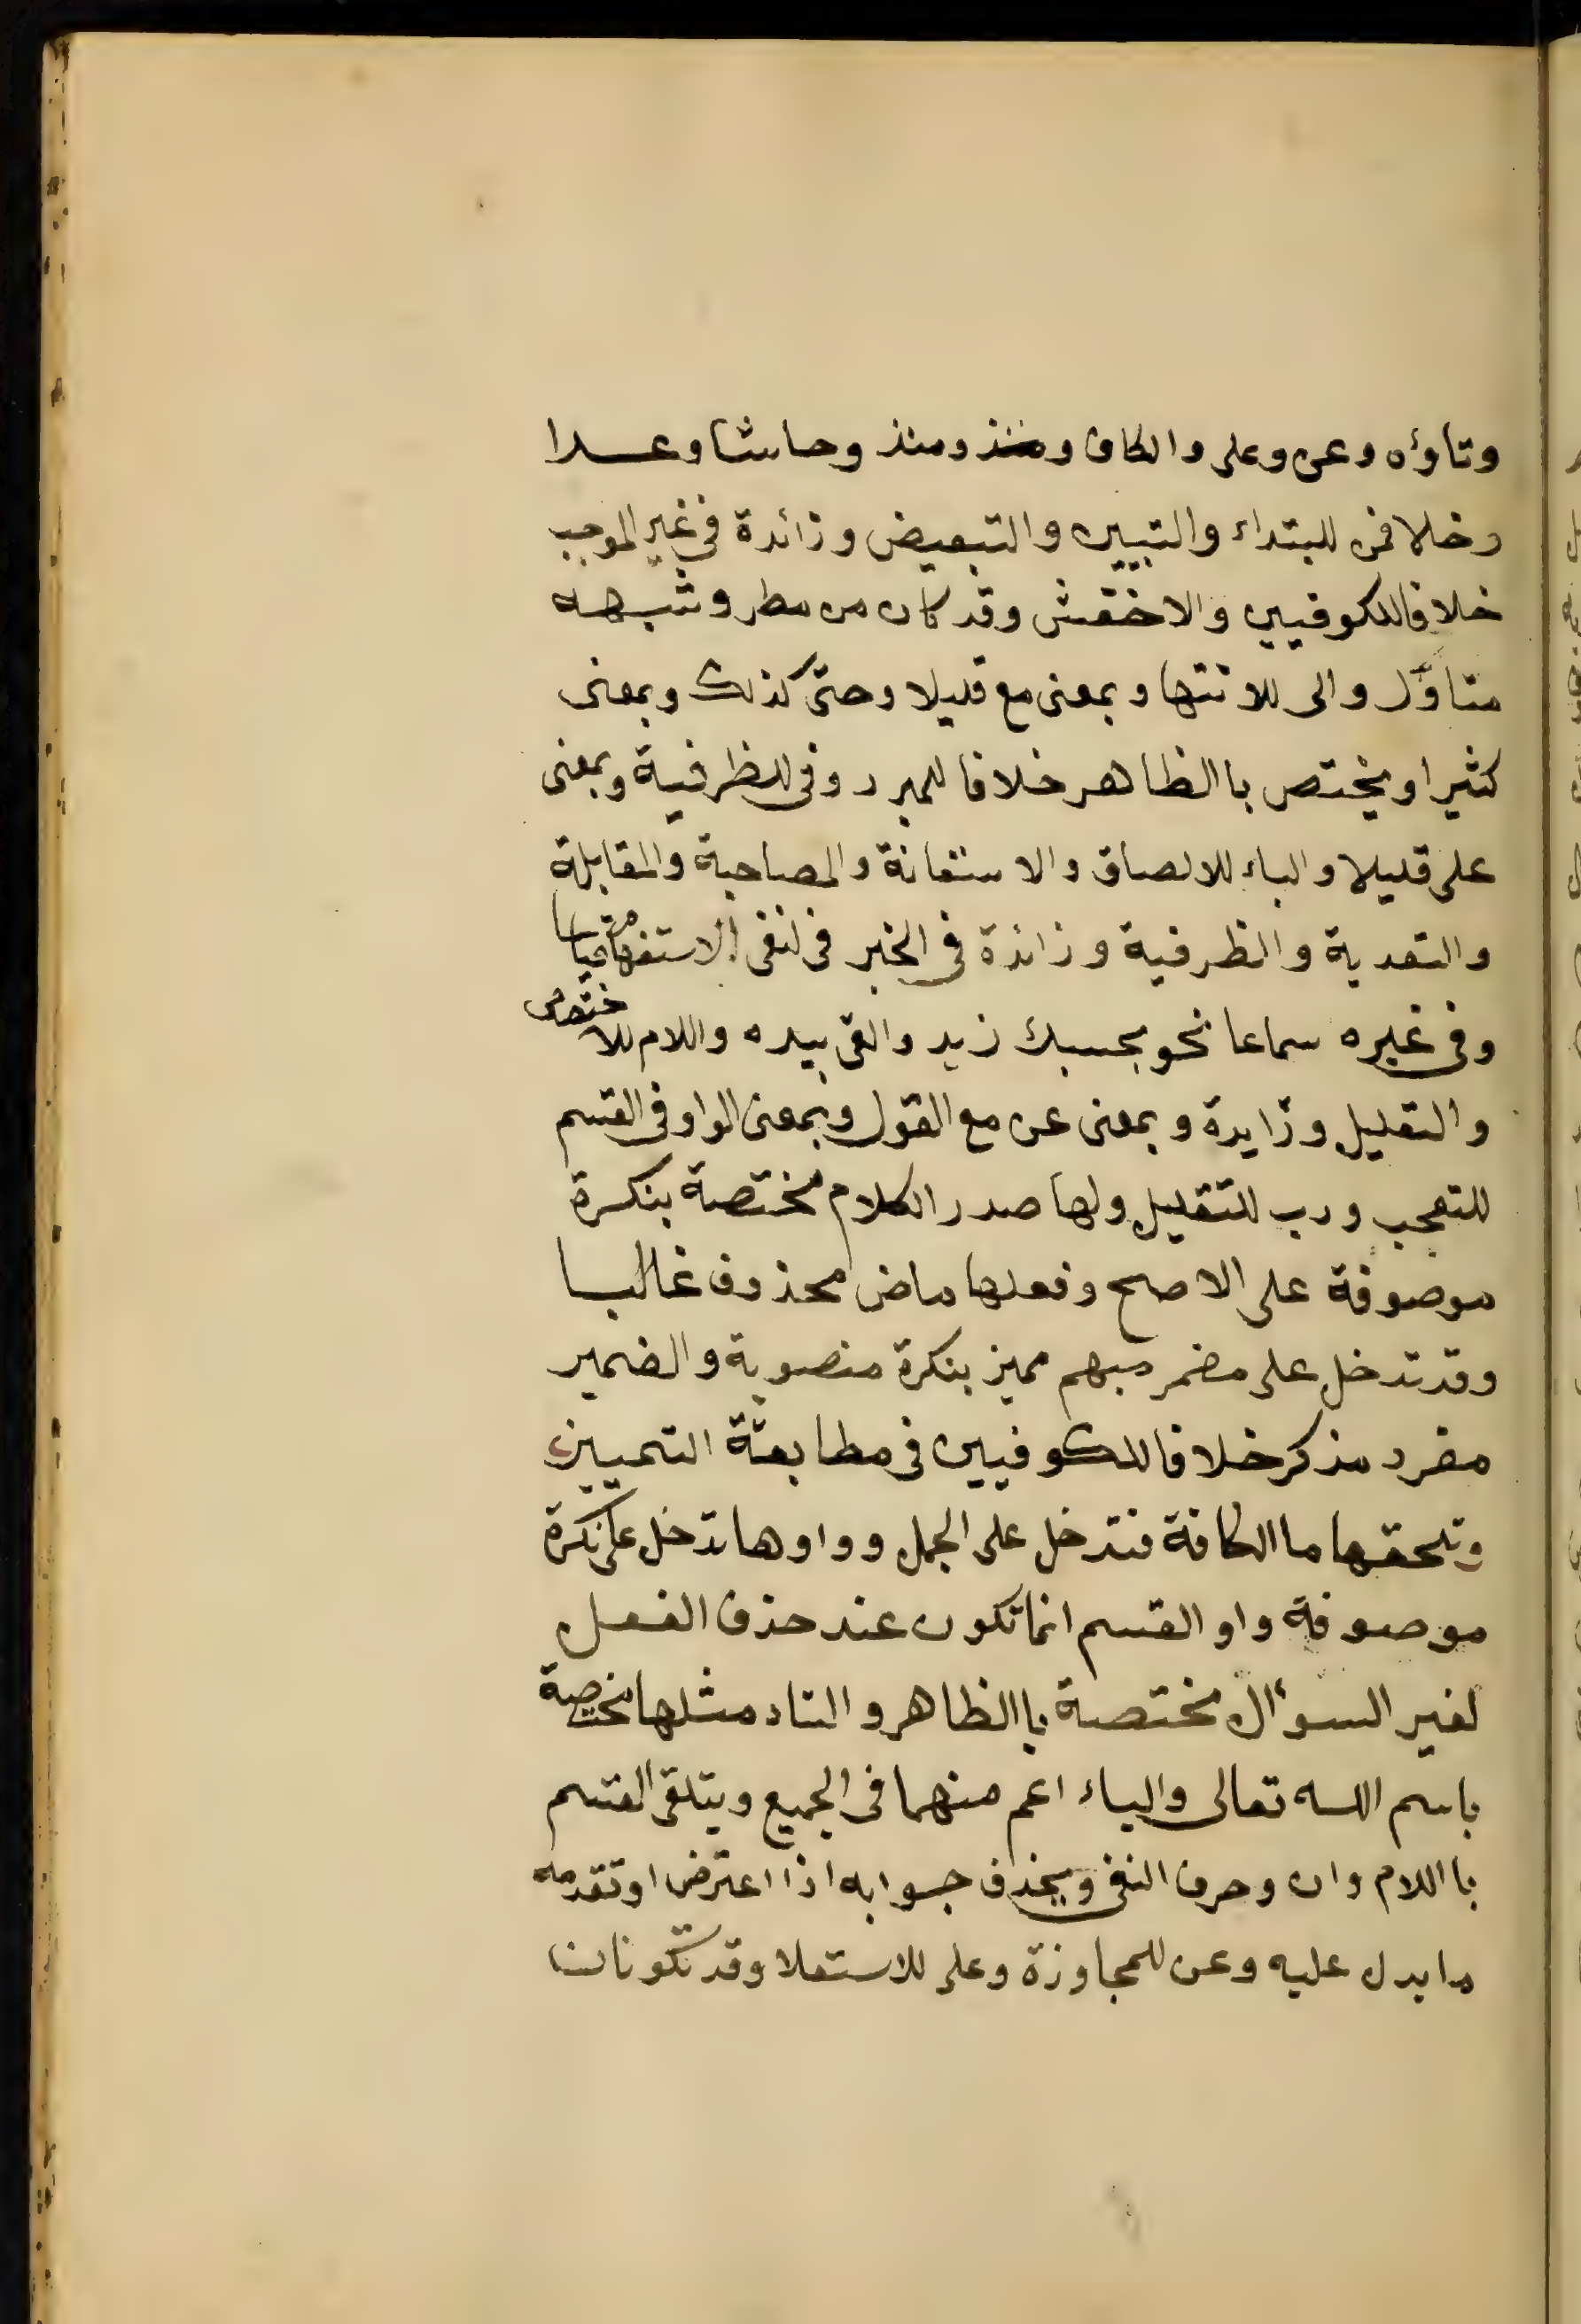 وتاؤه وعن وعلى والكاف ومنذ ومنذ وحاشا وعدا
وخلا فمن للبتداء والتبيين والتبعيض وزائدة في غير الموجب
خلافا للكوفيين والاخفش وقد كان من مطر وشبهه
متأوّل والى للانتها وبمعنى مع قليلا وحتى كذلك وبمعنى
كثيرا ويختص باالظاهر خلافا للمبرد وفي للظرفية وبمعنى
على قليلا والباء للالصاق والاستعانة والمصاحبة والمقابلة
والتعدية والظرفية وزائدة في الخبر في لنفى الاستفهام قياسا
وفي غيره سماعا نحو بحسبك زيد والقى بيده واللام للاختصاص
والتعليل وزايدة وبمعنى عن مع القول وبمعنى الواو في القسم
للتعجب ورب للتقليل ولها صدر الكلام مختصة بنكرة
موصوفة على الاصح وفعلها ماض محذوف غالبا
وقد تدخل على مضمر مبهم مميز بنكرة منصوبة والضمير
مفرد مذكر خلافا للكوفيين في مطابعتة التمييز
وتلحقها ما الكافة فتدخل على الجمل وواوها تدخل على نكرة
موصوفة واو القسم انما تكون عند حذف الفعل
لغير السؤال مختصة باالظاهر والتاء مثلها مختصة
باسم الله تعالى والباء اعم منهما في الجميع ويتلقى القسم
باللام وان وحرف النفى ويحذف جوابه اذا اعترض او تقدمه
ما يدل عليه وعن للمجاوزة وعلى للاستعلا وقد تكونان